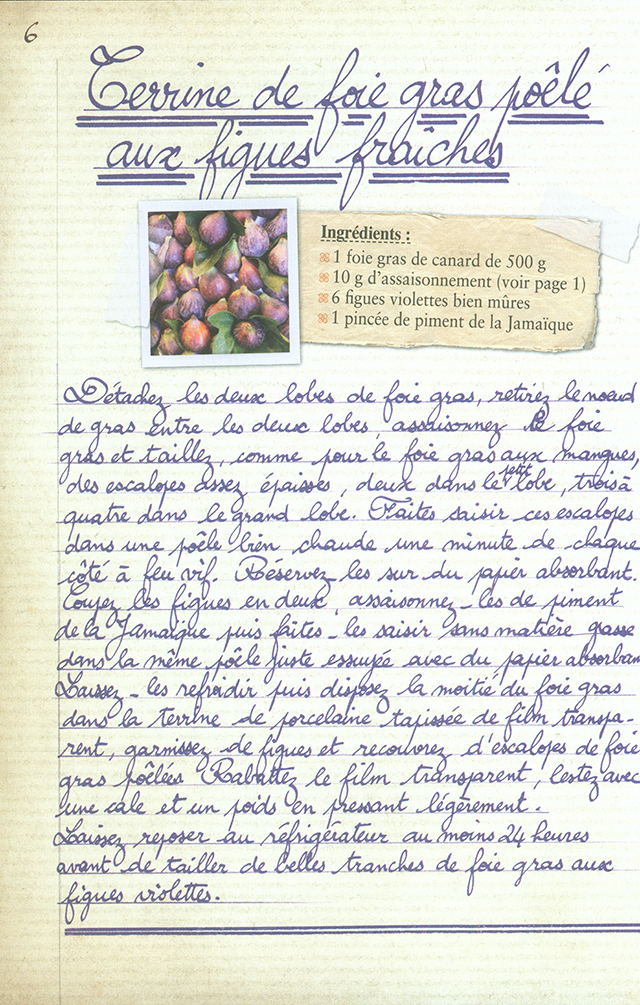 6
Terrine de foie gras poêlé
aux figues fraîches
Ingrédients :
1 foie gras de canard de 500 g
10 g d'assaisonnement (voir page 1)
6 figues violettes bien mûres
1 pincée de piment de la Jamaïque
Détachez les deux lobes de foie gras, retirez le noeud
de gras entre les deux lobes, assaisonnez le foie
gras et taillez, comme pour le foie gras aux mangues,
des escalopes assez épaisses, deux dans le petit lobe, trois à
quatre dans le grand lobe. Faites saisir ces escalopes
dans une poêle bien chaude une minute de chaque
côté à feu vif. Réservez les sur du papier absorbant.
Coupez les figues en deux, assaisonnez-les de piment
de la Jamaïque puis faites-les saisir sans matière gasse
dans la même poêle juste essuyée avec du papier absorban
Laissez-les refroidir puis disposez la moitié du foie gras
dans la terrine de porcelaine tapissée de film transpa-
rent, garnissez de figues et recouvrez d'escalopes de foie
gras poêlées Rabattez le film transparent, lestez avec
une cale et un poids en pressant légèrement.
Laissez reposer au réfrigérateur au moins 24 heures
avant de tailler de belles tranches de foie gras aux
figues violettes.